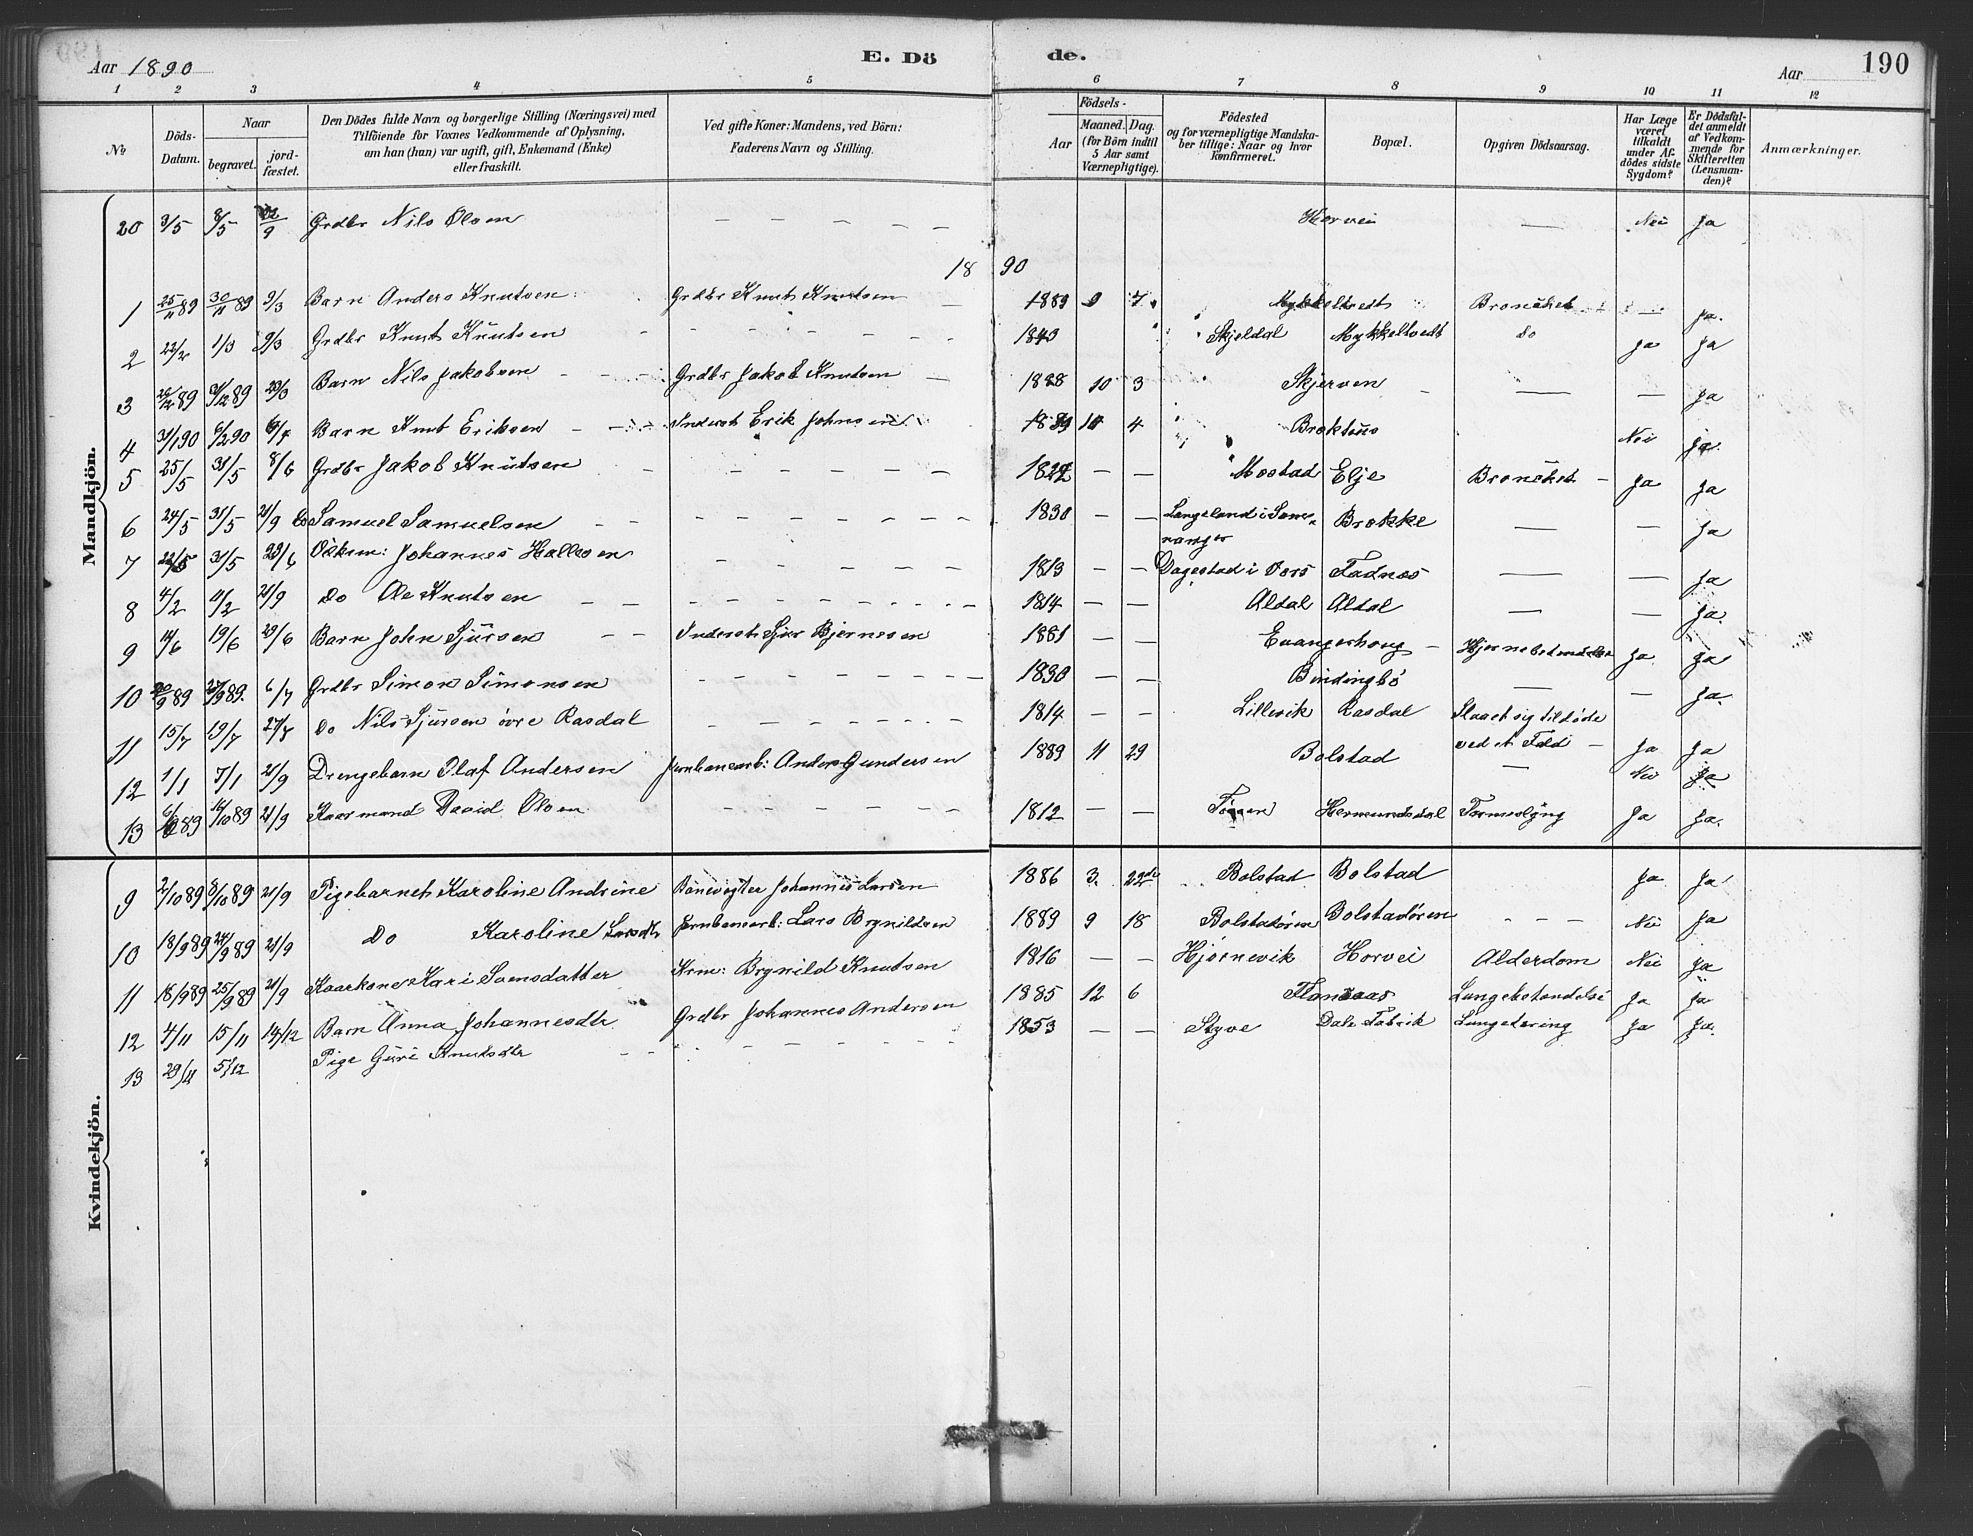 Aar 1890 E. Dö de. Aar 190
1 2 3 4 5 6 7 8 9 10 11 12
№ Döds-Datum. Naar begravet. jord-fæstet. Den Dödes fulde Navn og borgerlige Stilling (Næringsvei) med Tilföiende for Voxnes Vedkommende af Oplysning, om han (hun) var ugift, gift, Enkemand (Enke) eller fraskilt. Ved gifte Koner: Mandens, ved Börn: Faderens Navn og Stilling. Födsels- Aar Maaned. Dag. (for Börn indtil 5 Aar samt Værnepligtige). Födested og for værnepligtige Mandskaber tillige: Naar og hvor konfirmeret. Bopæl. Opgiven Dödsaarsag. Har Læge været tilkaldt under Afdödes sidste Sygdom? Er Dödsfaldet anmeldt af Vedkommende for Skifteretten (Lensmanden)? Anmærkninger.
Mandkjön.
20 3/5 8/5 Grdbr Nils Olsen — — — — — Horvei — Nei Ja
18 90
1 25/11 89 30/11 89 9/3 Barn Anders Knutsen Grdbr Knut Knutsen — 1889 9 7 Mykkeltvedt — Ja.
2 22/2 1/3 9/3 Grdbr Knut Knutsen 1843 Skjeldal Mykkeltvedt Do Ja Ja
3 89 31/12 89 Barn Nils Jakobsen Grdbr Jakob Knutsen — 1888 10 3 Skjerven — — Ja
4 31/1 90 6/2 90 Barn Knut Eriksen Inderst Erik Johnsen 4 Nei Ja.
5 25/5 31/5 8/6 Grdbr Jakob Knutsen Mostad Elje — Ja Ja
6 24/5 31/5 21/9 Samuel Samuelsen 1830 — — Langeland i Sam-nanger Brokke — Ja
7 31/5 Johannes Hallesen 1813 — — Dagestad i Vors Fadnes — — Ja
8 4/2 11/2 21/9 Do Ole Knutsen 1814 — — Aldal Aldal — — Ja.
9 14/6 19/6 29/6 Barn John Sjursen Inderst Sjur Bjørnesen 1881 — — Evangerhoug — Hjernebetændelse Ja Ja
10 89 89. 6/7 Grdbr Simon Simonsen 1830 — — Bindingbö — — Ja.
11 15/7 19/7 27/7 Do Nils Sjursen övre Rasdal 1814 — — Lillevik Rasdal Slaaet sig tildöde ved et Fald — Ja Ja
12 1/1 7/1 21/9 Drengebarn Olaf Andersen Jernbanearb: Anders Gundersen 1889 11 29 Bolstad — Nei Ja
13 89 89 21/9 Kaarmand David Olsen 1812 — — Hermundsdal Ja Ja.
Kvindekjön.
9 2/10 89 8/10 89 21/9 Pigebarnet Karoline Andrine Banevogter Johannes Larsen 1886 3. Bolstad Bolstad Ja Ja
10 18/9 89 24/9 89 21/9 Do Karoline Larsdtr Jernbanearb: Lars Brynildsen 1889 9 18 Bolstadören Bolstadören — — — Nei Ja
11 18/9 89 25/9 89 21/9 Kaarkone Kari Samsdatter Krm: Brynild Knutsen 1816 — — Hjörnevik Horvei Alderdom Nei Ja
12 4/11 15/11 14/12 Barn Anna Johannesdtr Grdbr Johannes Andersen 1885 12 6 Lungebetændelse Ja Ja
13 29/11 5/12 Pige Guri Knutsdtr 1853 — — Styve Dale Fabrik Lungetæring Ja Ja.